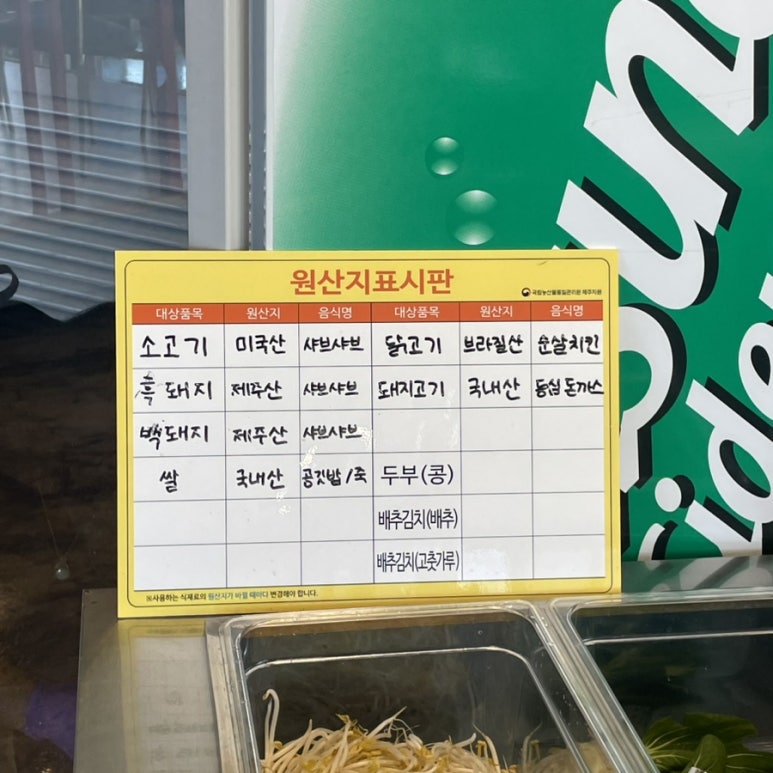 원산지표시판
국립농산물품질관리원 제주지원
대상품목 원산지 음식명 대상품목 원산지 음식명
소고기 미국산 샤브샤브 닭고기 브라질산 순살치킨
흑돼지 제주산 샤브샤브 돼지고기 국내산 등심돈까스
백돼지 제주산 샤브샤브
쌀 국내산 공깃밥/죽 두부(콩)
배추김치(배추)
배추김치(고춧가루)
※사용하는 식재료의 원산지가 바뀔 때마다 변경해야 합니다.